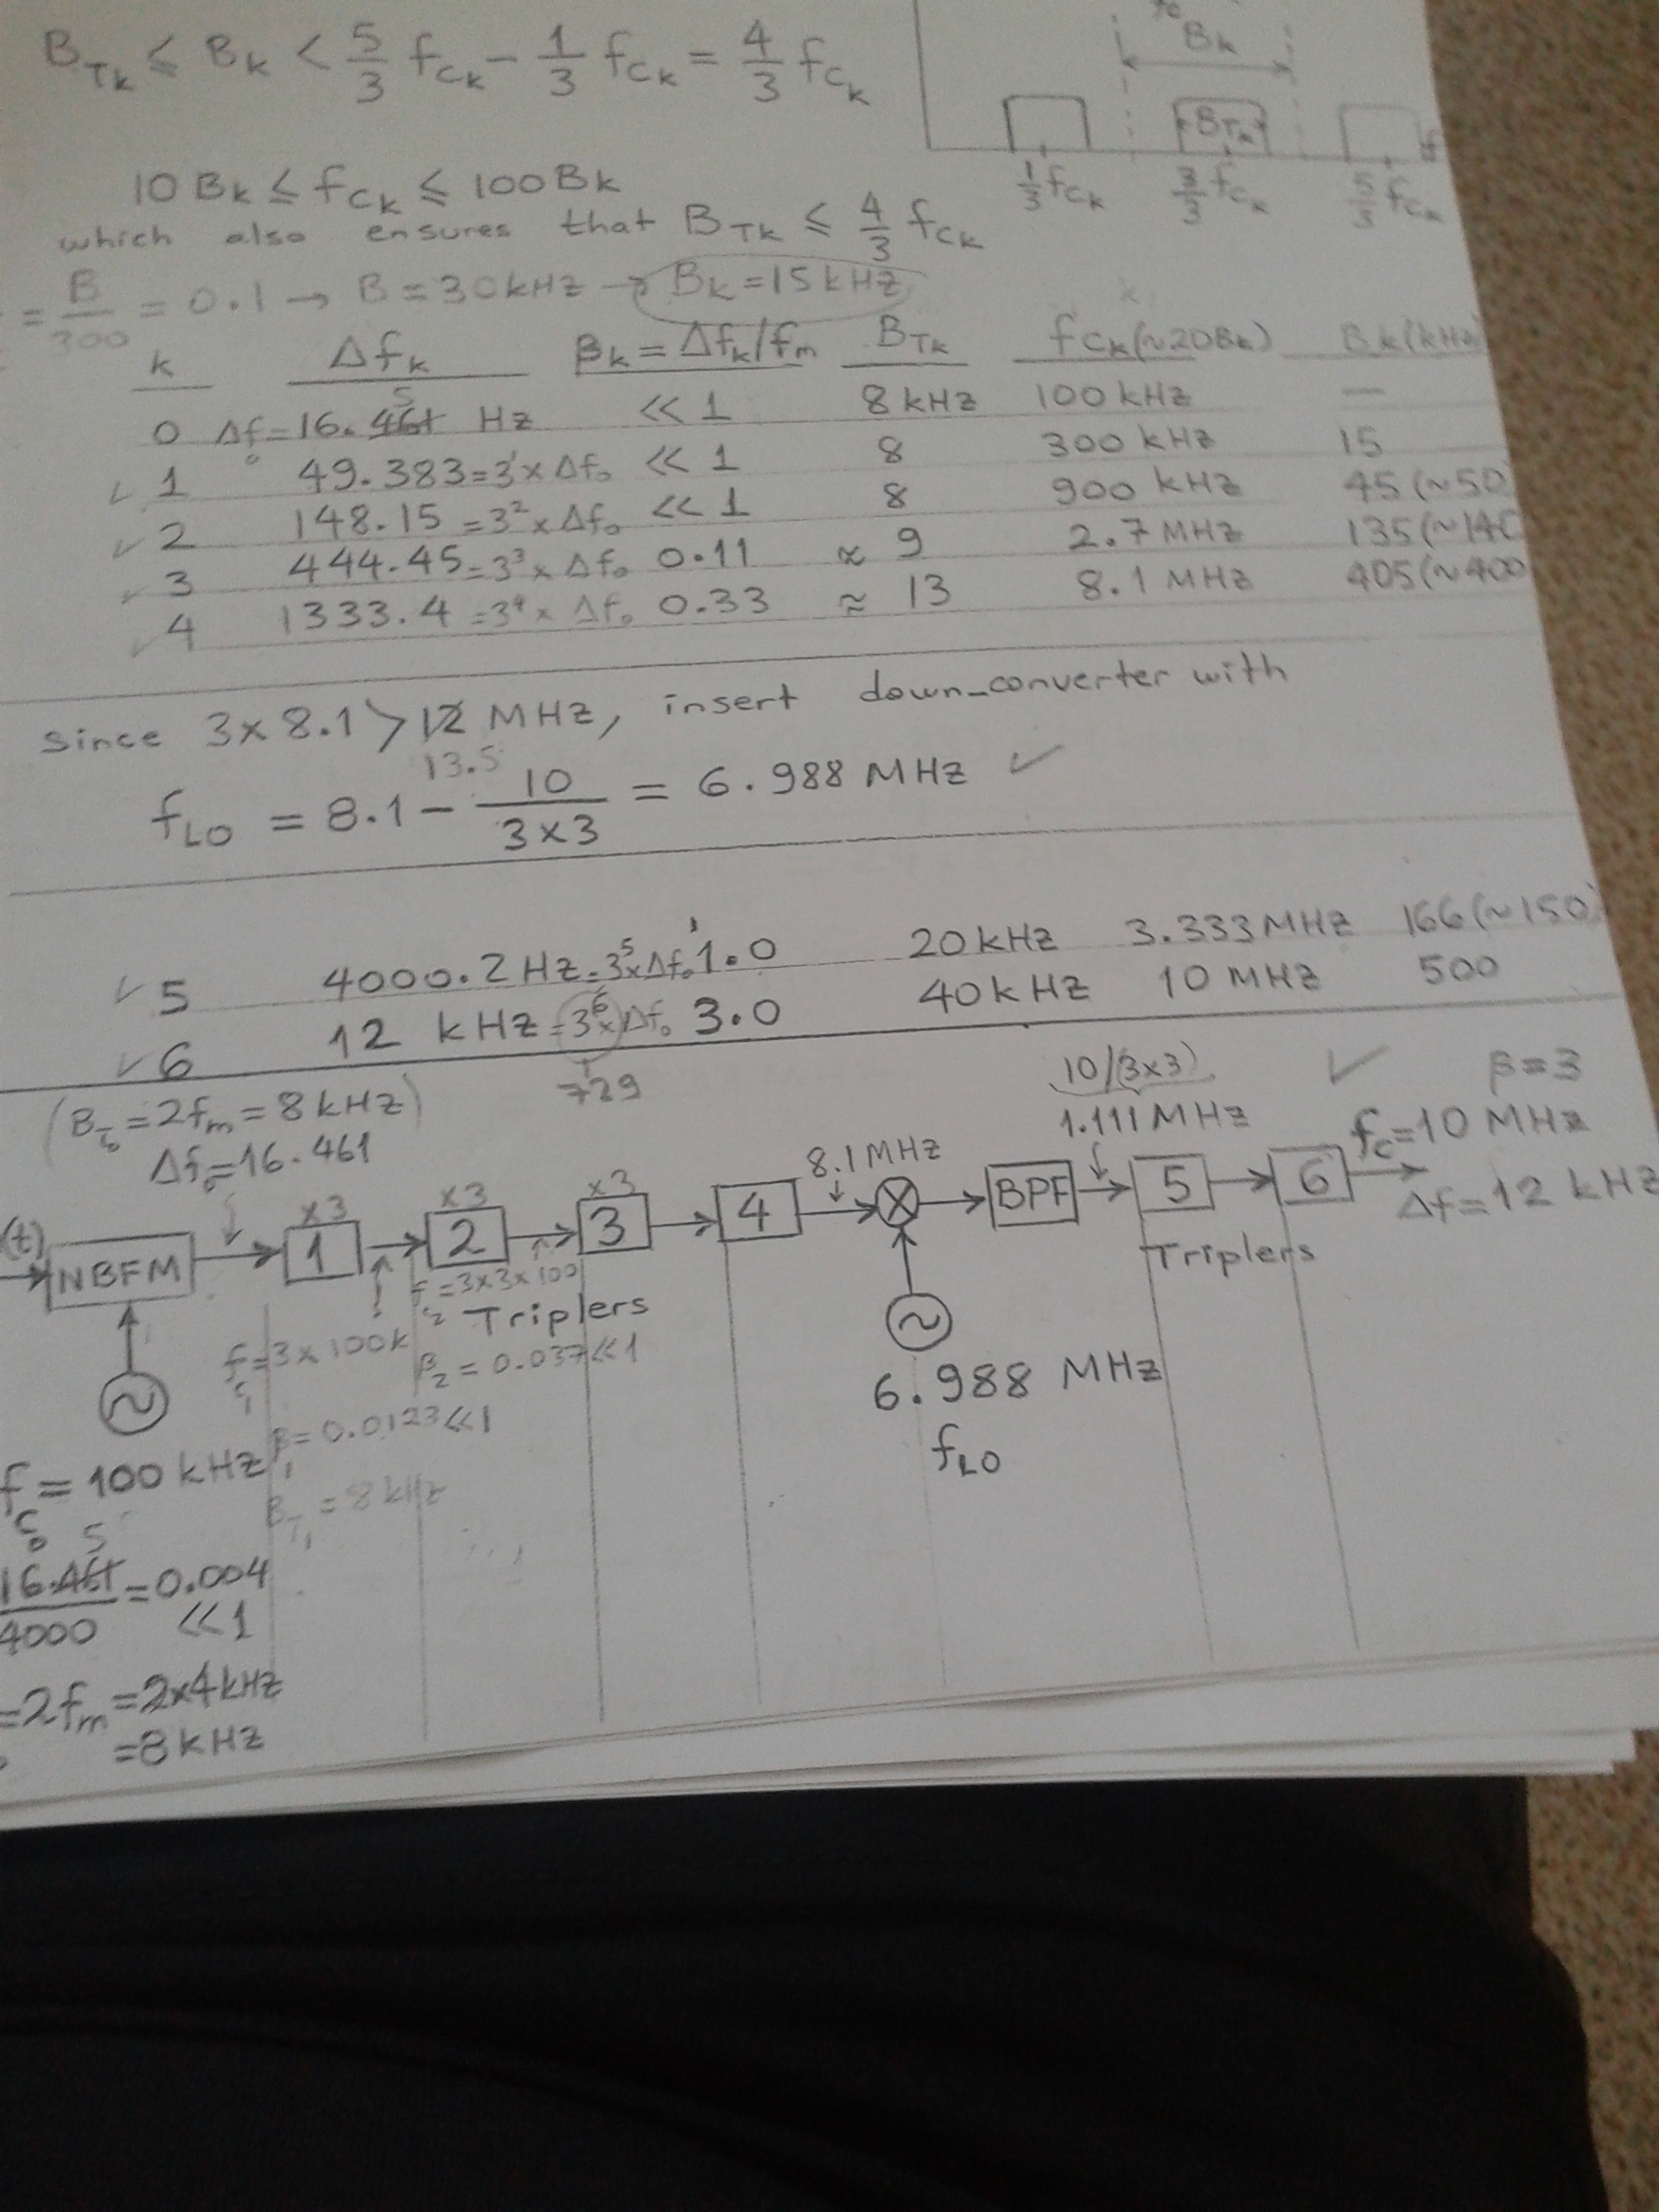 B_Tk ≤ B_k < 5/3 f_ck - 1/3 f_ck = 4/3 f_ck
B_k
B_Tk
f
1/3 f_ck 3/3 f_ck 5/3 f_ck
10 B_k ≤ f_ck ≤ 100 B_k
which also ensures that B_Tk ≤ 4/3 f_ck
= B/300 = 0.1 → B = 30 kHz → B_k = 15 kHz
k Δf_k β_k = Δf_k/f_m B_Tk f_ck (~20B_k) B_k (kHz)
0 Δf_0 = 16.461 5 Hz << 1 8 kHz 100 kHz —
1 49.383 = 3^1 x Δf_0 << 1 8 300 kHz 15
2 148.15 = 3^2 x Δf_0 << 1 8 900 kHz 45 (~50)
3 444.45 = 3^3 x Δf_0 0.11 ≈ 9 2.7 MHz 135 (~140
4 1333.4 = 3^4 x Δf_0 0.33 ≈ 13 8.1 MHz 405 (~400
Since 3 x 8.1 > 12 MHz, insert down-converter with
13.5
f_LO = 8.1 - 10/(3x3) = 6.988 MHz ✓
5 4000.2 Hz = 3^5 x Δf_0 1.0 20 kHz 3.333 MHz 166 (~150)
6 12 kHz = 3^6 x Δf_0 3.0 40 kHz 10 MHz 500
729
(B_T0 = 2f_m = 8 kHz)
Δf_0 = 16.461
10/(3x3)
1.111 MHz
β = 3
f_c = 10 MHz
Δf = 12 kHz
8.1 MHz
x3 x3 x3
(t) NBFM 1 2 3 4 BPF 5 6
Triplers
f_c1 = 3 x 100k
f_c2 = 3x3x100
Triplers
β_2 = 0.037 << 1
β_1 = 0.0123 << 1
B_T1 = 8 kHz
6.988 MHz
f_LO
f_c0 = 100 kHz
5
16.461/4000 = 0.004
<< 1
= 2f_m = 2x4 kHz
= 8 kHz